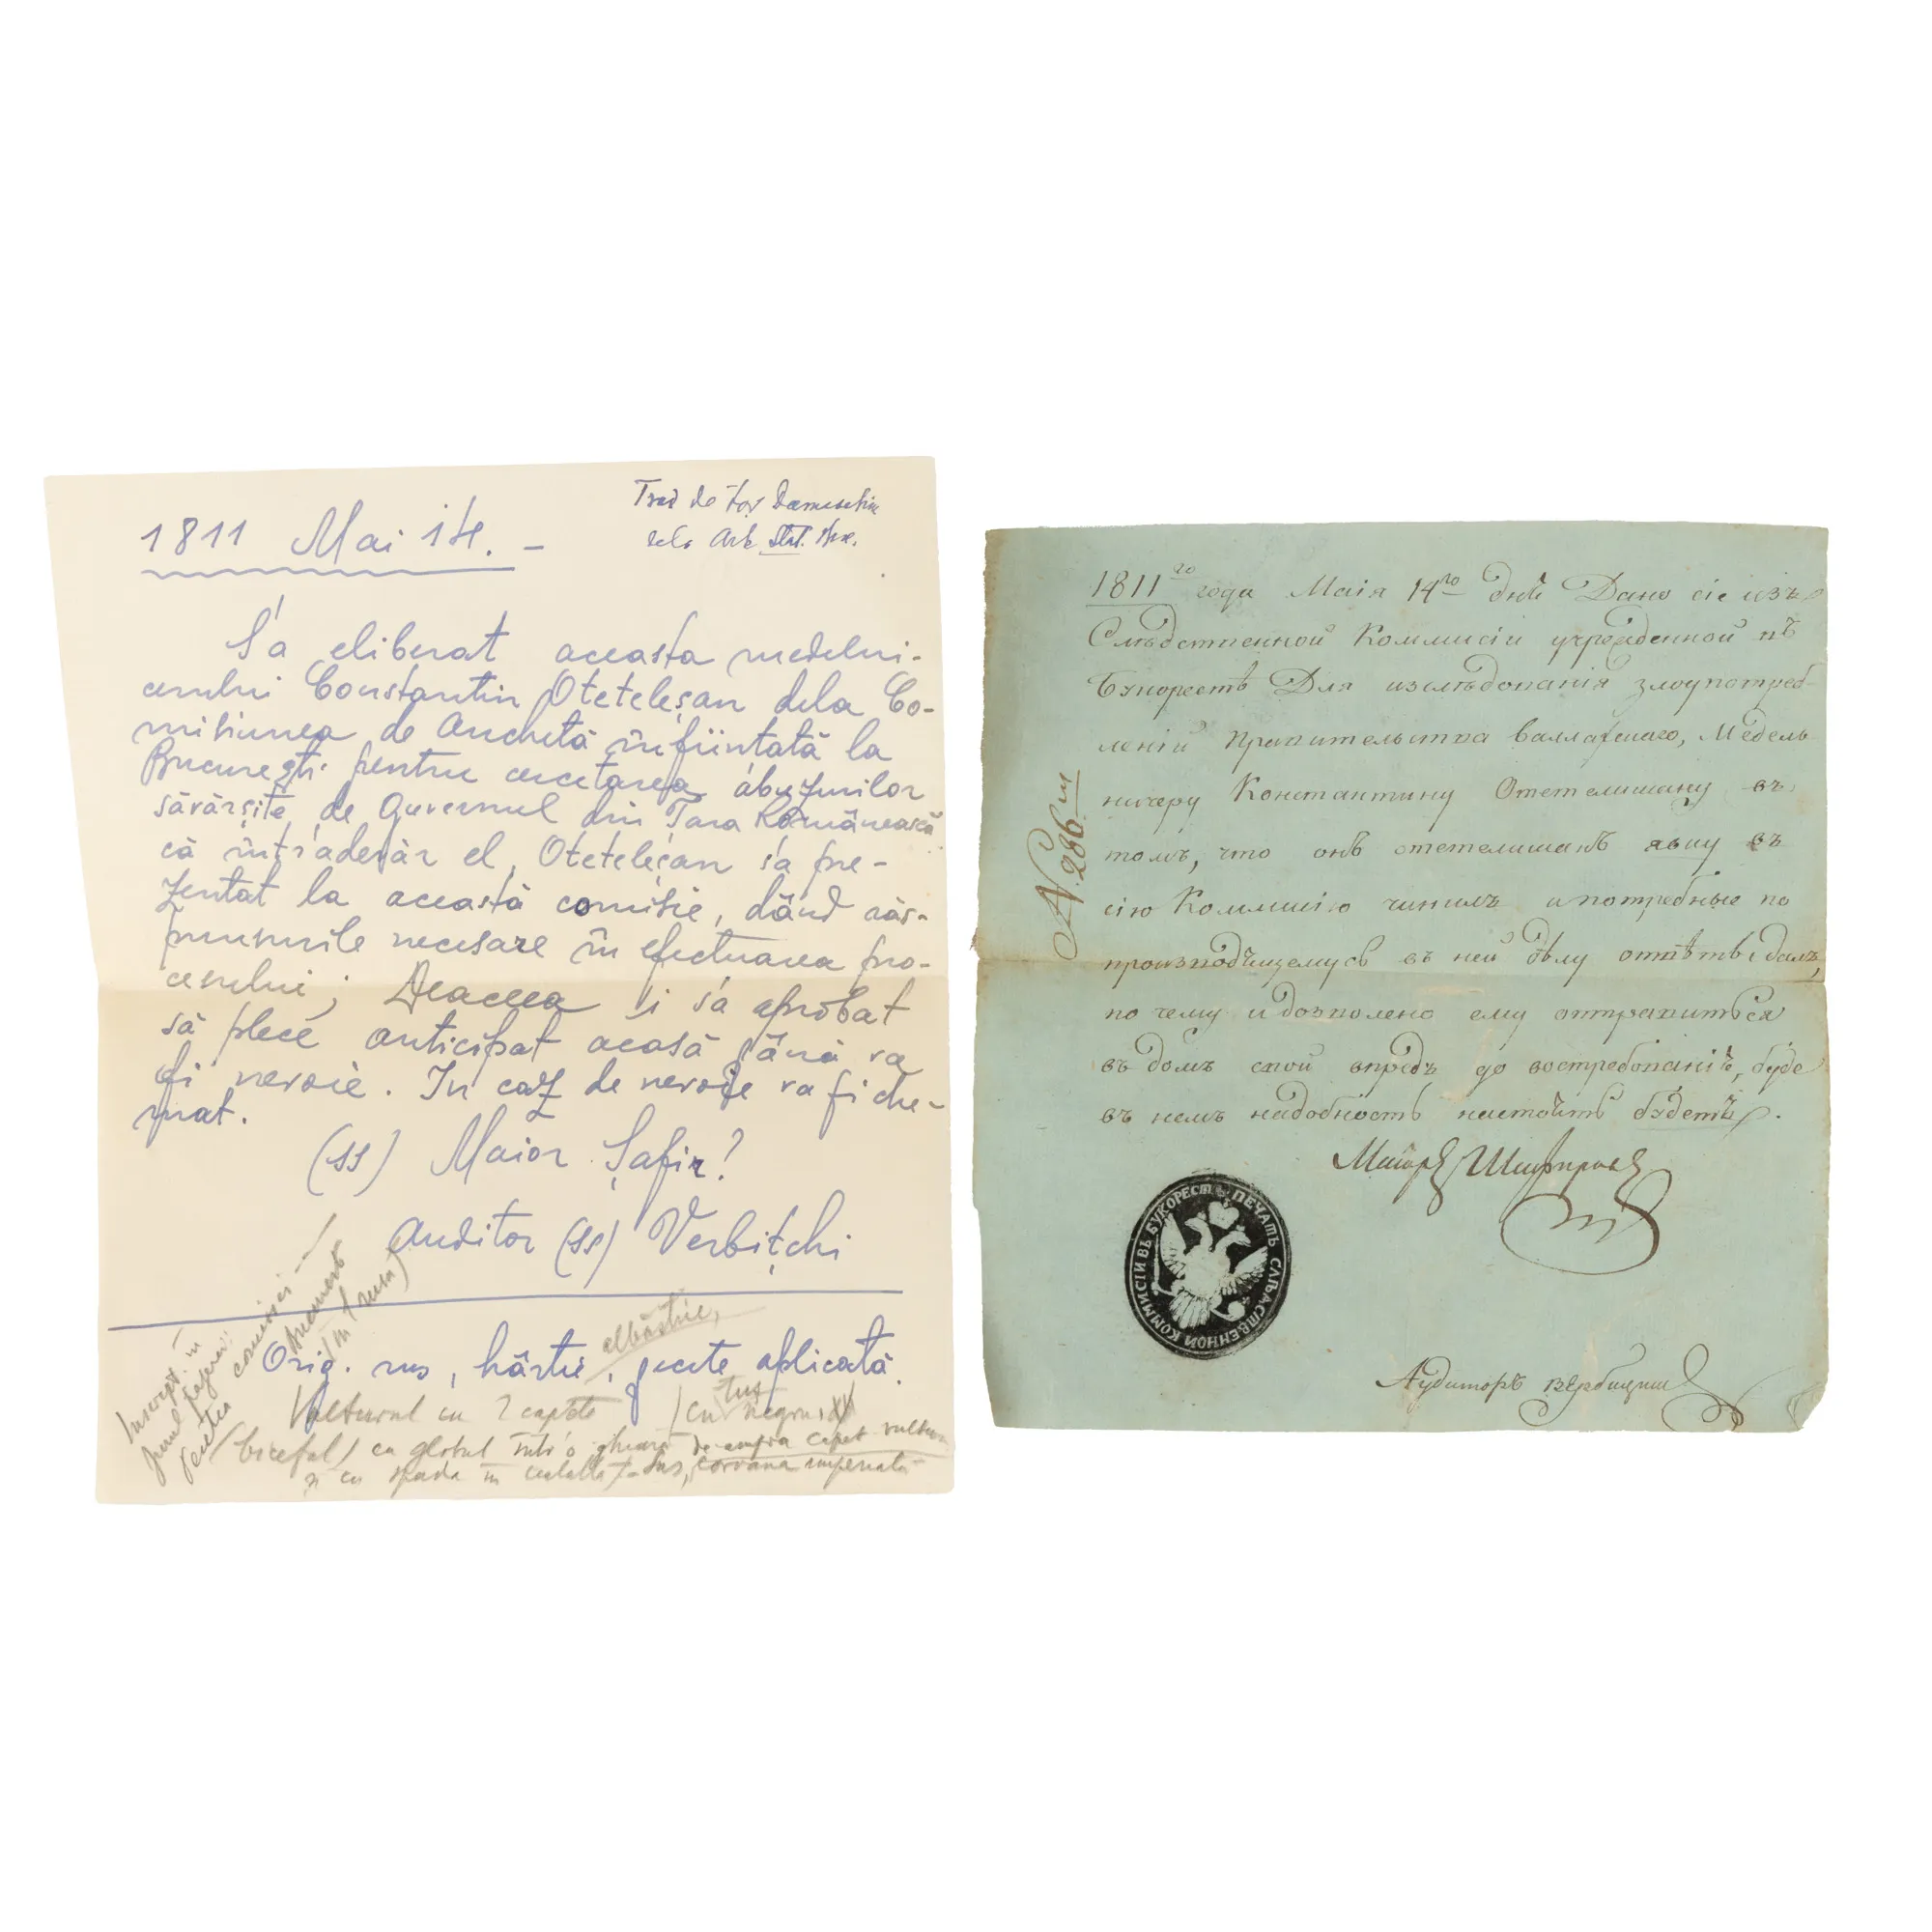 1811 Mai 14. -
Trad de tov Damuschin
dela Arh Stat. Buc.
S'a eliberat aceasta medelni-
cerului Constantin Oteteleșan dela Co-
misiunea de Anchetă înființată la
București pentru cercetarea abuzurilor
săvârșite de Guvernul din Țara Românească
că într'adevăr el, Otetelеșan s'a pre-
zentat la această comisie, dând răs-
punsurile necesare în efectuarea pro-
cesului; Deaceea i s'a aprobat
să plece anticipat acasă până va
fi nevoie. In caz de nevoie va fi che-
mat.
(ss) Maior Șafir?
Auditor (ss) Verbițchi
Orig. rus, hârtie albăstrie, pecete aplicată.
Vulturul cu 2 capete (cu tuș negru)
(bicefal) cu globul intr'o ghiară de-asupra capet. vultur
și cu spada în cealaltă - sus, coroana imperială
Inscript. în
jurul pajerei:
Pecetea comisiei
București
(în l. rusă)
1811го года Маія 14го днѣ Дано сіе изъ
Слѣдственной Коммисіи учрежденной въ
Букорестѣ Для изслѣдованія злоупотреб-
леніи Правительства валлахскаго, Медель
ничеру Константину Отетелишану въ
томъ, что онъ отетелишанъ явку въ
сію Коммисію чинилъ и потребные по
производящемуся въ ней дѣлу отвѣты далъ,
по чему и дозволено ему отправиться
въ домъ свой впредь до востребованіѣ, буде
въ немъ надобность настоять будетъ.
N. 286й
Маіоръ Шафировъ
ПЕЧАТЬ СЛѢДСТВЕННОЙ КОММИСІИ ВЪ БУКОРЕСТѢ
Аудиторъ Вербицкии